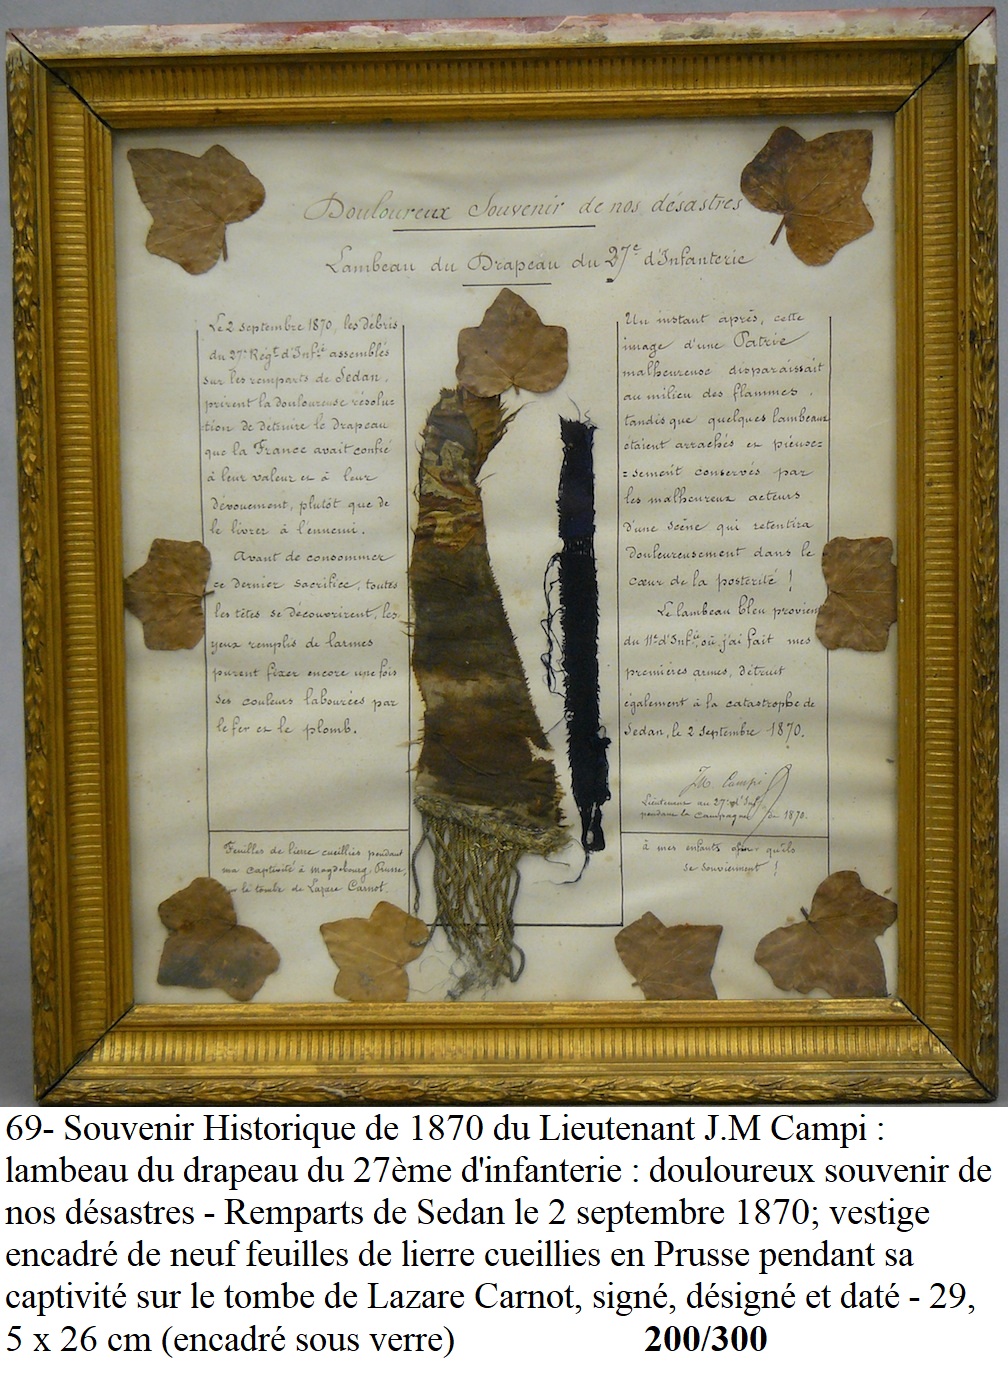 Douloureux Souvenir de nos désastres
Lambeau du Drapeau du 27e d'Infanterie
Le 2 septembre 1870, les débris
du 27e Régt d'Infie assemblés
sur les remparts de Sedan,
prirent la douloureuse résolu-
tion de détruire le drapeau
que la France avait confié
à leur valeur et à leur
dévouement, plutôt que de
le livrer à l'ennemi.
Avant de consommer
ce dernier sacrifice, toutes
les têtes se découvrirent, les
yeux remplis de larmes
purent fixer encore une fois
ses couleurs labourées par
le fer et le plomb.
Feuilles de lierre cueillies pendant
ma captivité à Magdebourg, Prusse,
le tombe de Lazare Carnot.
Un instant après, cette
image d'une Patrie
malheureuse disparaissait
au milieu des flammes,
tandis que quelques lambeaux
étaient arrachés et pieuse=
=sement conservés par
les malheureux acteurs
d'une scène qui retentira
douloureusement dans le
cœur de la postérité !
Le lambeau bleu provient
du 11e d'Infie, où j'ai fait mes
premières armes, détruit
également à la catastrophe de
Sedan, le 2 septembre 1870.
JM Campi
Lieutenant au 27e d'Inf
pendant la campagne de 1870.
à mes enfants afin qu'ils
se souviennent !
69- Souvenir Historique de 1870 du Lieutenant J.M Campi :
lambeau du drapeau du 27ème d'infanterie : douloureux souvenir de
nos désastres - Remparts de Sedan le 2 septembre 1870; vestige
encadré de neuf feuilles de lierre cueillies en Prusse pendant sa
captivité sur le tombe de Lazare Carnot, signé, désigné et daté - 29,
5 x 26 cm (encadré sous verre) 200/300